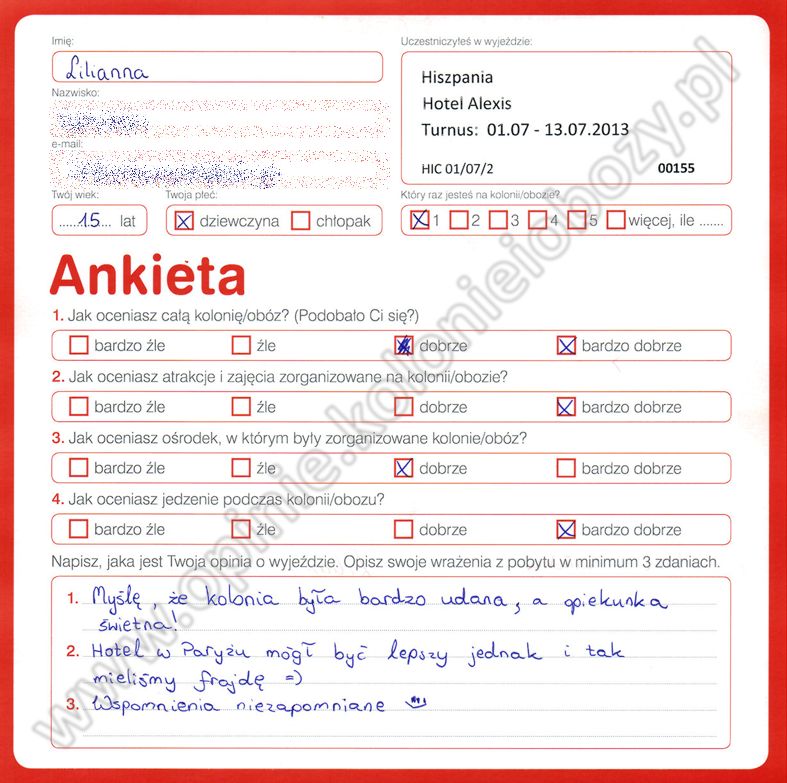 Imię:
Lilianna
Nazwisko:
e-mail:
Twój wiek:
......15... lat
Twoja płeć:
dziewczyna chłopak
Uczestniczyłeś w wyjeździe:
Hiszpania
Hotel Alexis
Turnus: 01.07 - 13.07.2013
HIC 01/07/2 00155
Który raz jesteś na kolonii/obozie?
1 2 3 4 5 więcej, ile .......
Ankieta
1. Jak oceniasz całą kolonię/obóz? (Podobało Ci się?)
bardzo źle źle dobrze bardzo dobrze
2. Jak oceniasz atrakcje i zajęcia zorganizowane na kolonii/obozie?
bardzo źle źle dobrze bardzo dobrze
3. Jak oceniasz ośrodek, w którym były zorganizowane kolonie/obóz?
bardzo źle źle dobrze bardzo dobrze
4. Jak oceniasz jedzenie podczas kolonii/obozu?
bardzo źle źle dobrze bardzo dobrze
Napisz, jaka jest Twoja opinia o wyjeździe. Opisz swoje wrażenia z pobytu w minimum 3 zdaniach.
1. Myślę, że kolonia była bardzo udana, a opiekunka
świetna!
2. Hotel w Paryżu mógł być lepszy jednak i tak
mieliśmy frajdę =)
3. Wspomnienia niezapomniane
www.opinie.kolonieiobozy.pl